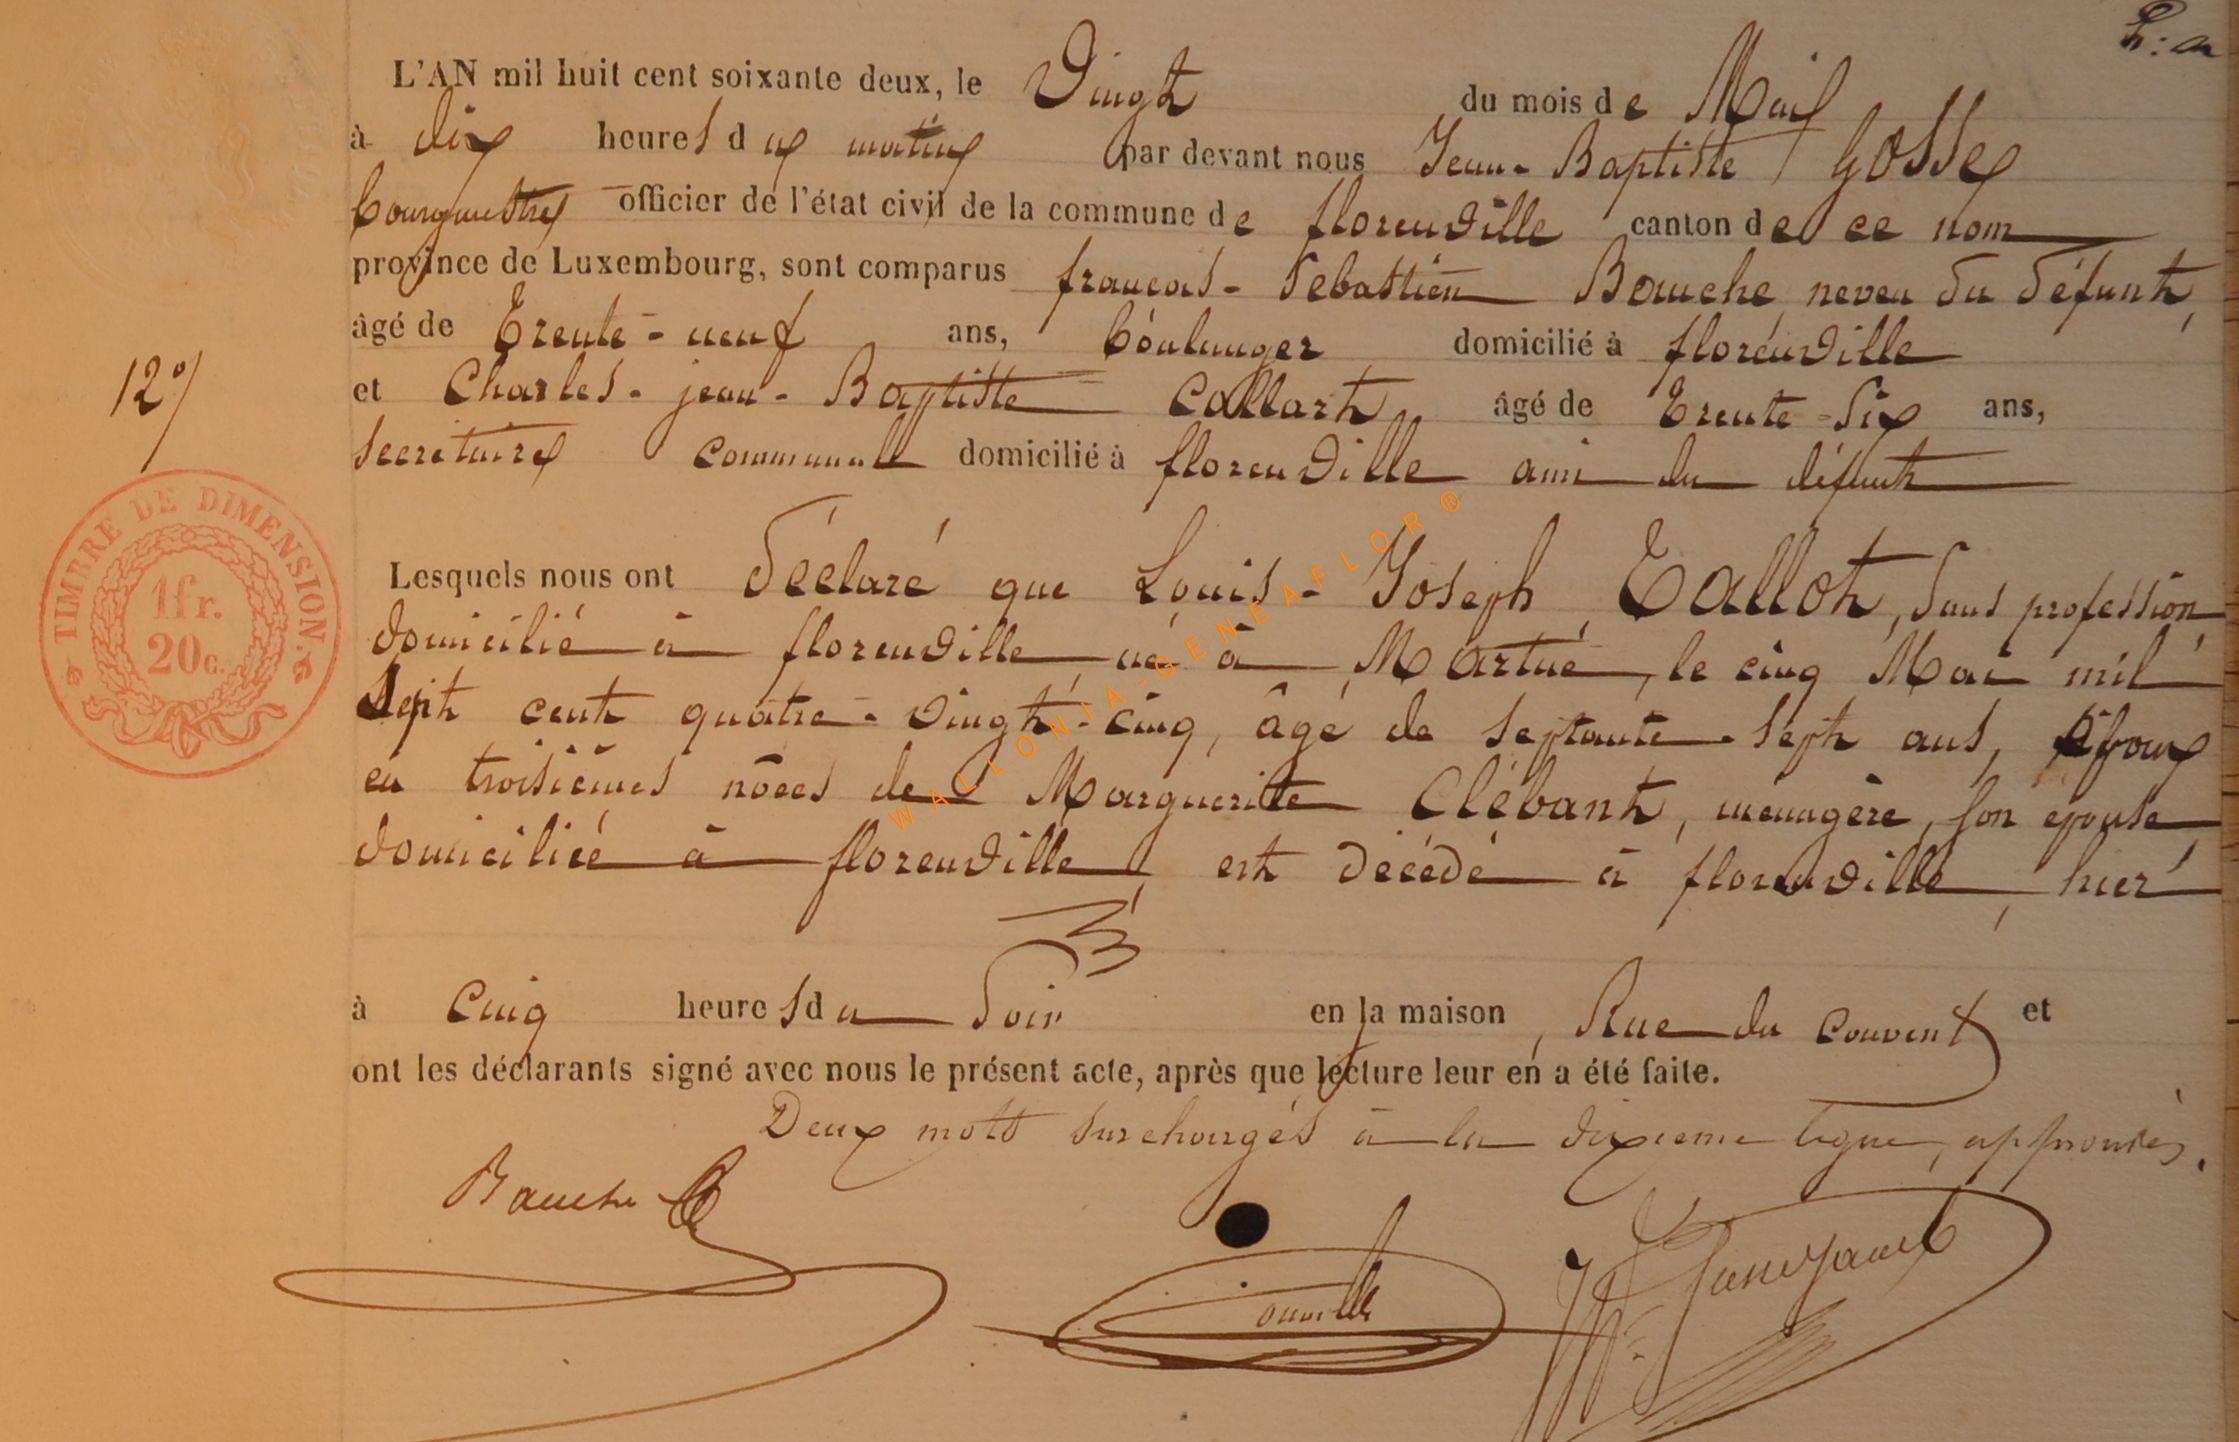 L'AN mil huit cent soixante deux, le Vingt du mois de Mai
à dix heures du matin par devant nous Jean-Baptiste Gosse
bourgmestre officier de l'état civil de la commune de florenville canton de ce nom
province de Luxembourg, sont comparus françois-Sebastien Bauche, neveu du défunt,
âgé de Trente-neuf ans, boulanger domicilié à florenville
12°/
et Charles-jean-Baptiste Collart âgé de Trente-Six ans,
secrétaire communal domicilié à florenville ami du défunt
TIMBRE DE DIMENSION.
1fr.
20c.
Lesquels nous ont déclaré que Louis-Joseph Tallot, sans profession
domicilié à florenville, né à Martué, le cinq Mai mil
sept cent quatre-vingt-cinq, âgé de septante-sept ans, époux
en troisièmes nôces de Marguerite Clébant, ménagère, son épouse
domiciliée à florenville, est décédé à florenville, hier
à Cinq heures du soir en la maison, Rue du couvent et
ont les déclarants signé avec nous le présent acte, après que lecture leur en a été faite.
Deux mots surchargés à la dixieme ligne, approuvés.
Bauche
WALLONIA-GENEAFLOR ®